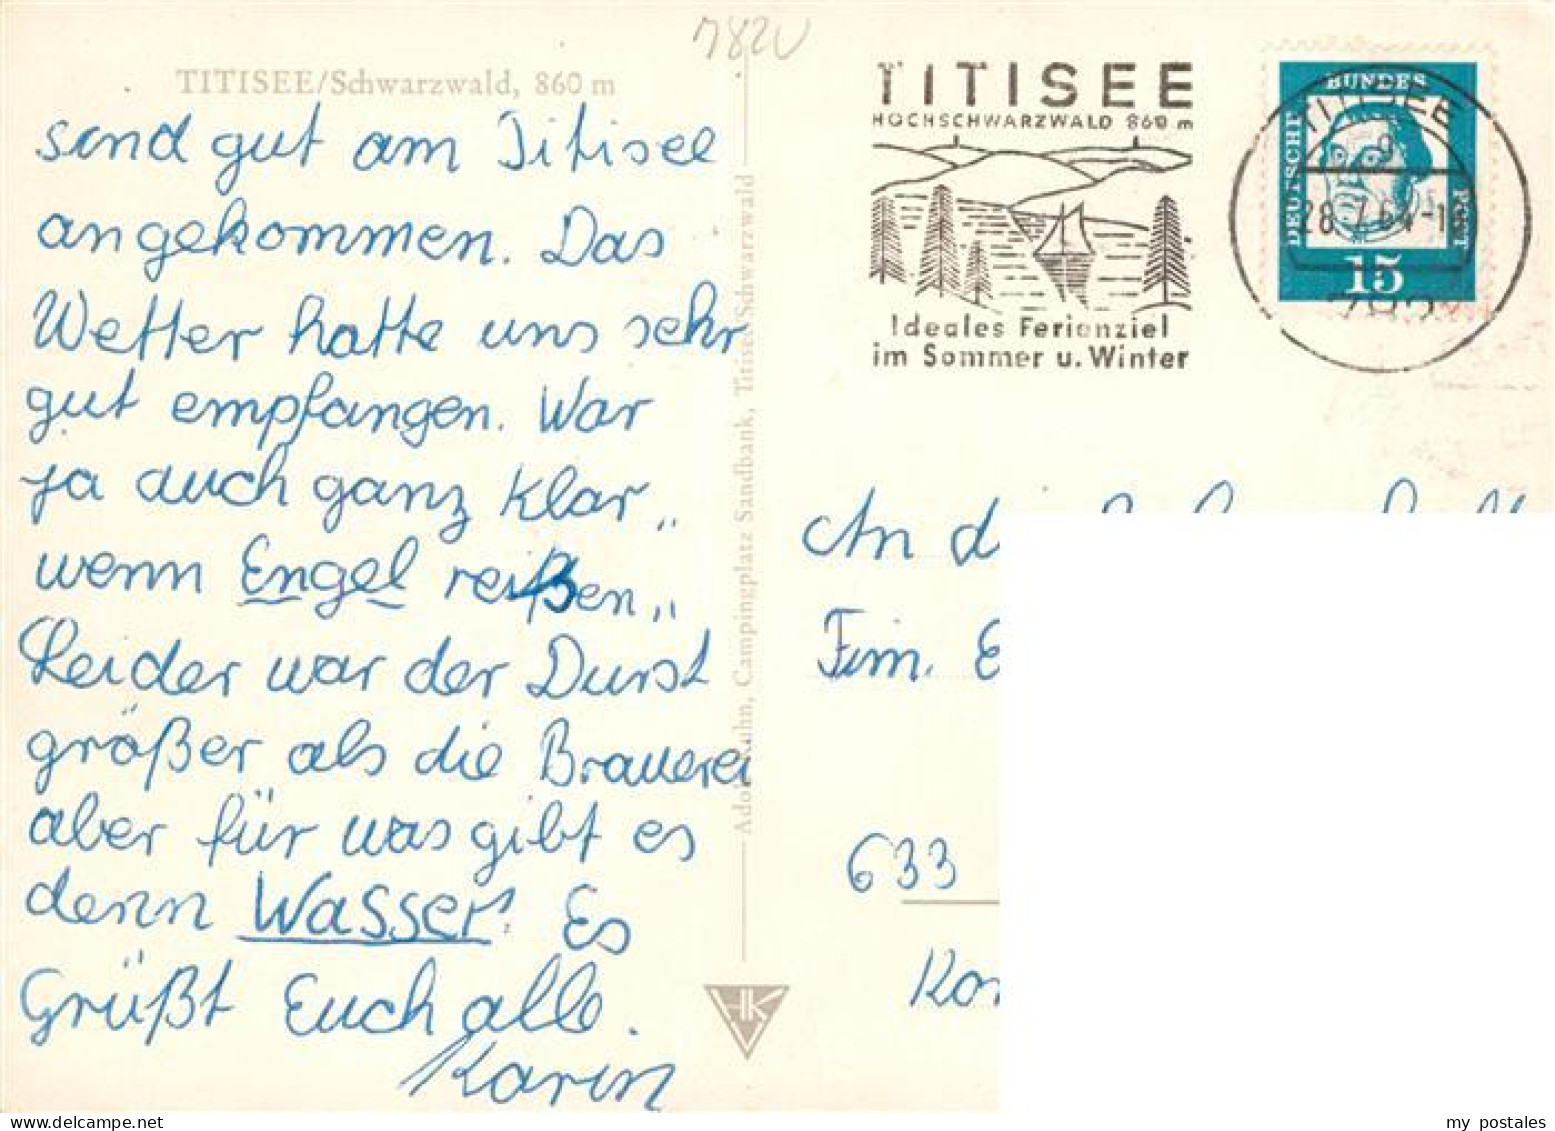 7820
TITISEE/Schwarzwald, 860 m
sind gut am Titisee
angekommen. Das
Wetter hatte uns sehr
gut empfangen. War
ja auch ganz klar „
wenn Engel reißen „
Leider war der Durst
größer als die Brauerei
aber für was gibt es
denn Wasser. Es
Grüßt Euch alle.
Karin
Adolf Kuhn, Campingplatz Sandbank, Titisee/Schwarzwald
HK
TITISEE
HOCHSCHWARZWALD 860 m
Ideales Ferienziel
im Sommer u. Winter
DEUTSCHE
BUNDES
POST
15
TITISEE
28.7.64-1
An
Fim. E
633
Kor
my postales